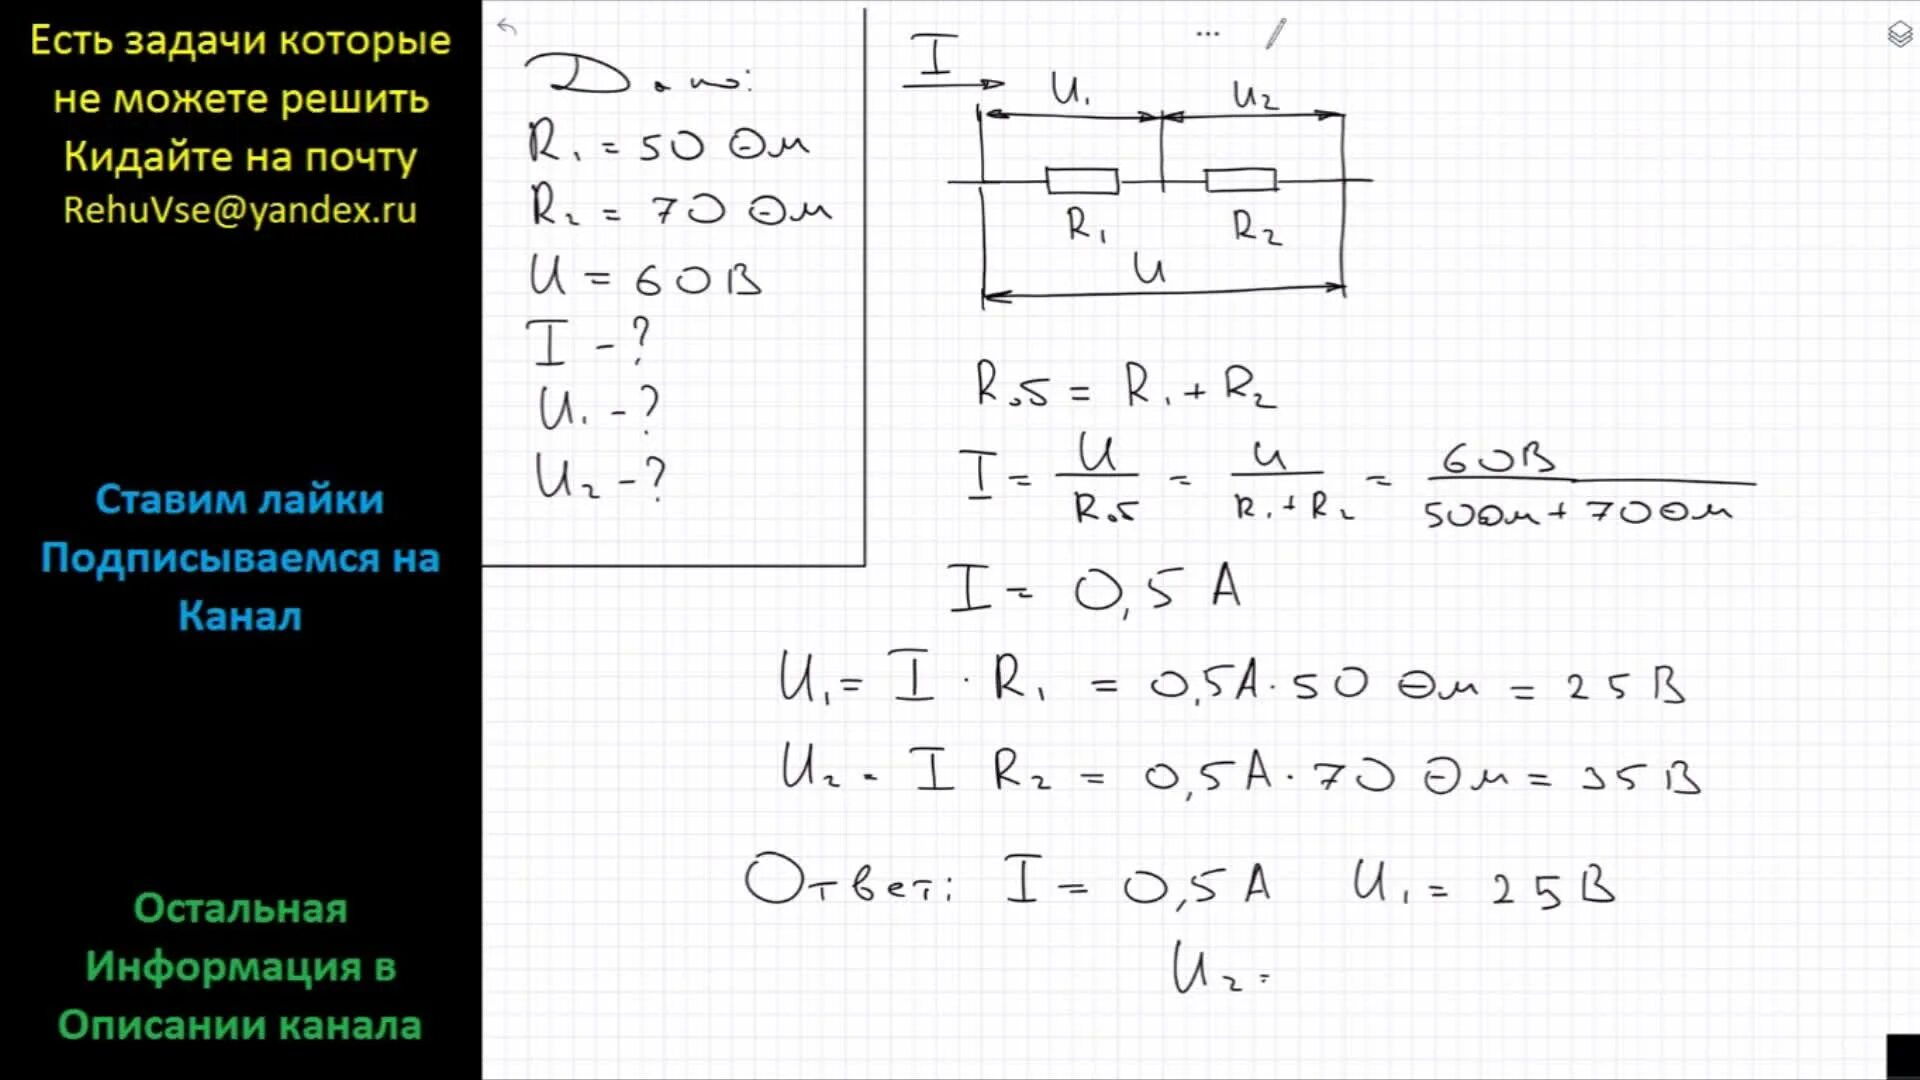 Есть задачи которые
не можете решить
Кидайте на почту
RehuVse@yandex.ru
Ставим лайки
Подписываемся на
Канал
Остальная
Информация в
Описании канала
Дано:
R₁ = 50 Ом
R₂ = 70 Ом
U = 60В
I - ?
U₁ - ?
U₂ - ?
I
U₁ U₂
R₁ R₂
U
Rоб = R₁ + R₂
I = U/Rоб = U/(R₁ + R₂) = 60В/(50Ом + 70Ом)
I = 0,5 А
U₁ = I · R₁ = 0,5А · 50 Ом = 25 В
U₂ = I R₂ = 0,5А · 70 Ом = 35 В
Ответ: I = 0,5А U₁ = 25В
U₂ =